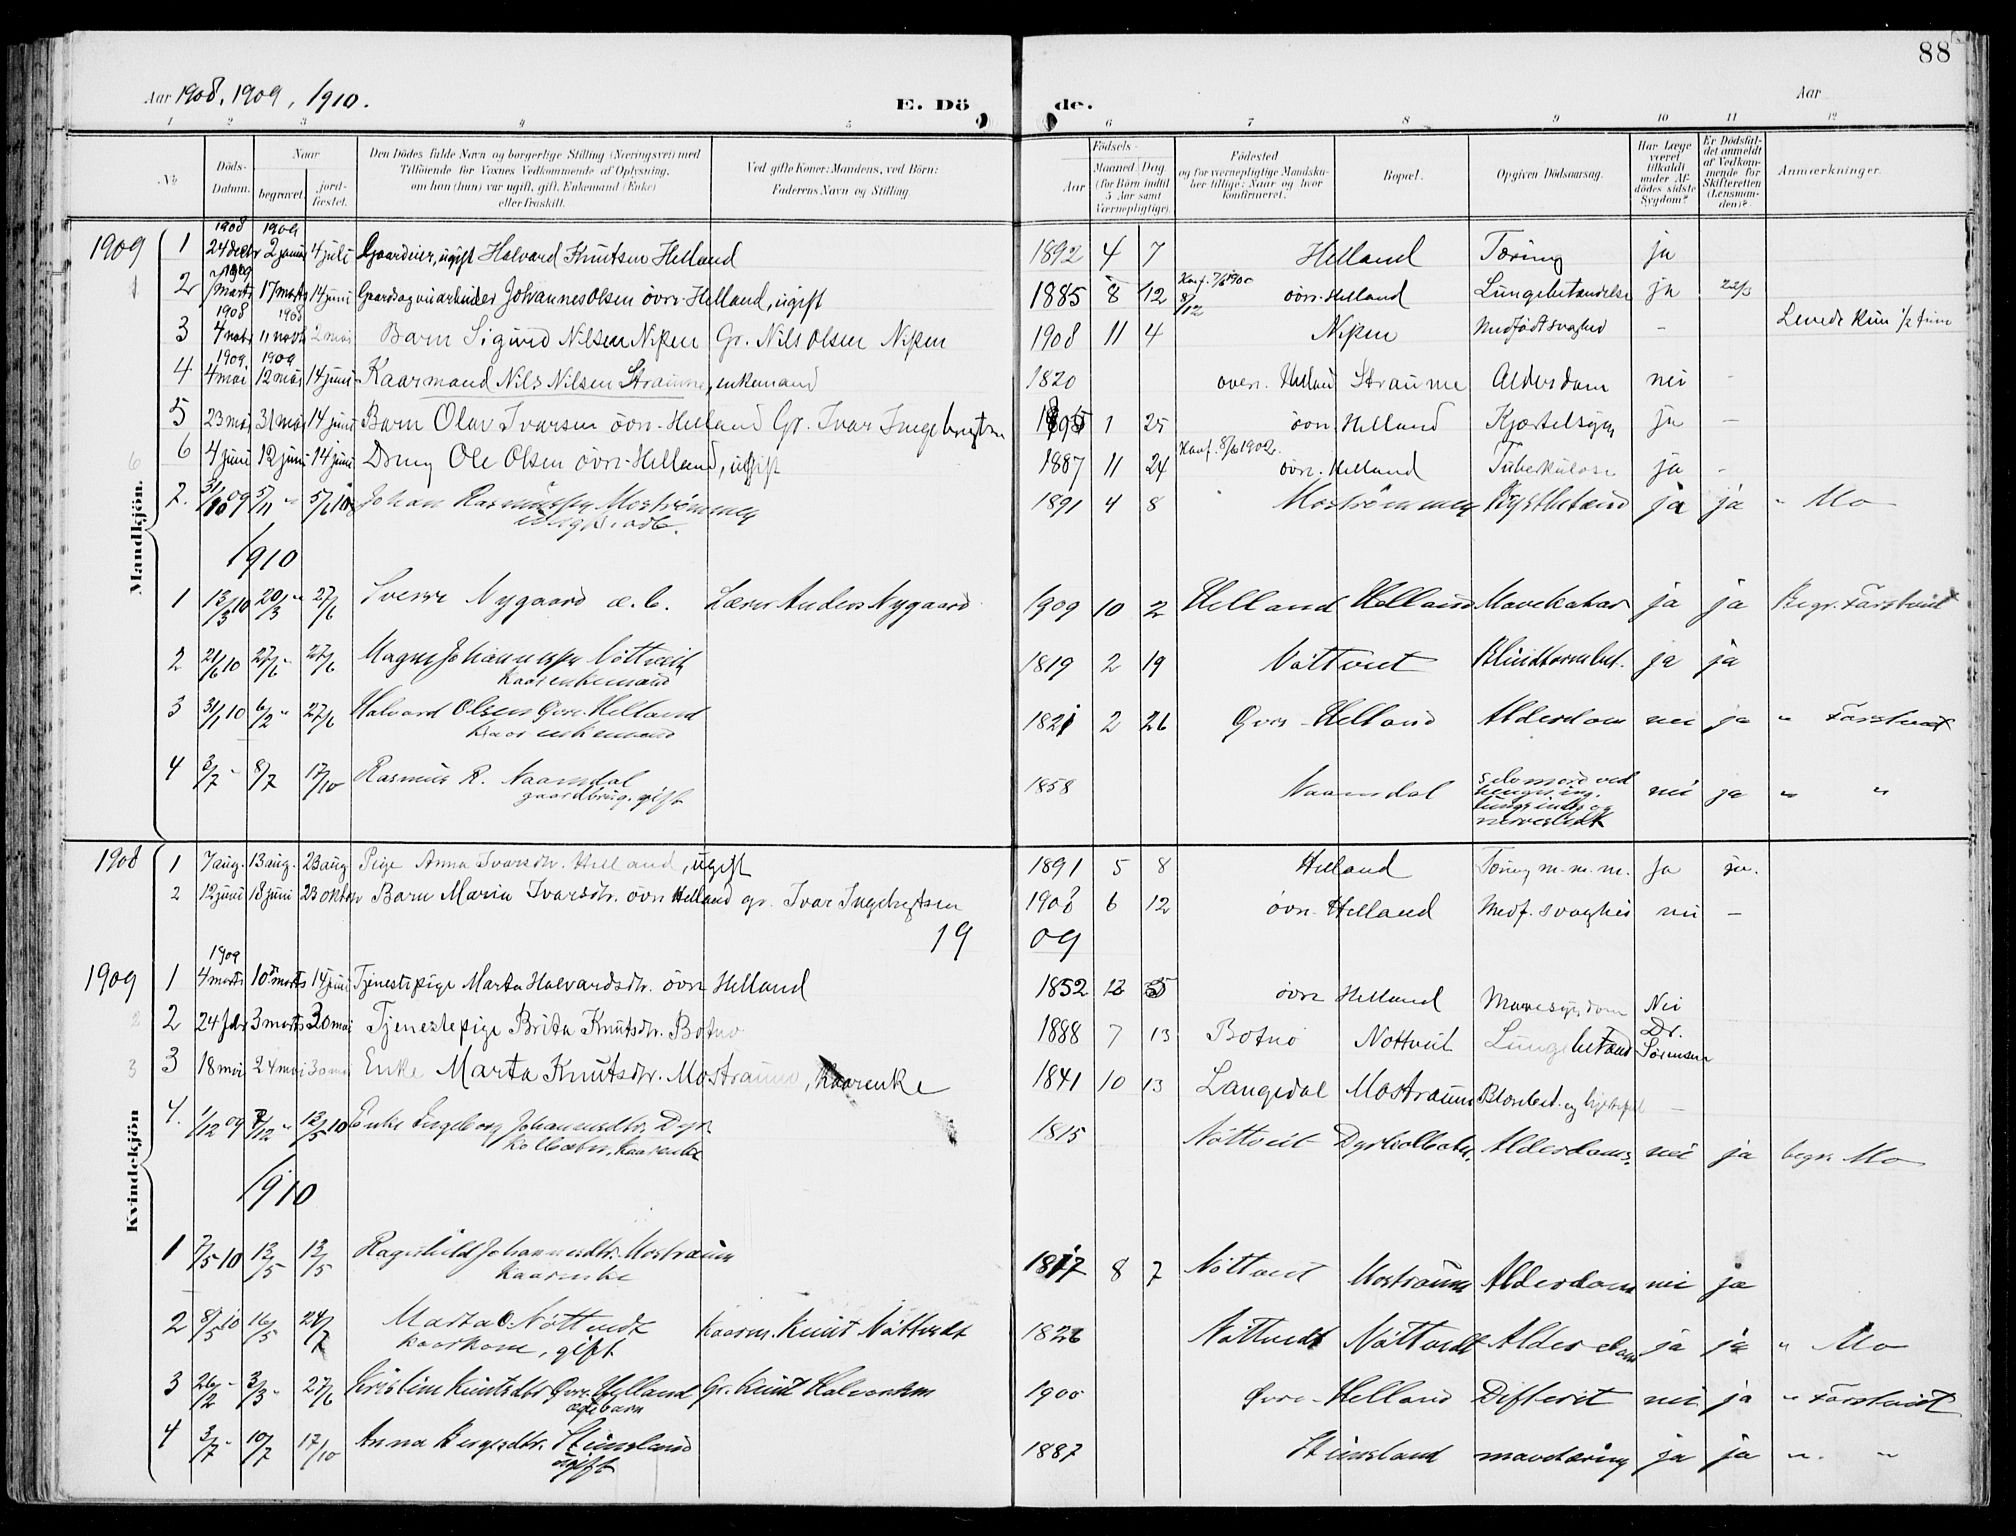 88
Aar 1908, 1909, 1910.
E. Döde.
Aar
1 2 3 4 5 6 7 8 9 10 11 12
No
Döds-Datum.
Naar
begravet.
jord-fæstet.
Den Dödes fulde Navn og borgerlige Stilling (Næringsvei) med
Tilföiende for Voxnes Vedkommende af Oplysning,
om han (hun) var ugift, gift, Enkemand (Enke)
eller fraskilt.
Ved gifte Koner: Mandens, ved Börn:
Faderens Navn og Stilling
Födsels-
Aar
Maaned Dag
(for Börn indtil
5 Aar samt
Værnepligtige).
Födested
og for værnepligtige Mandskaber tillige: Naar og hvor
konfirmeret.
Bopæl.
Opgiven Dödsaarsag.
Har Læge
været
tilkaldt
under Afdödes sidste
Sygdom?
Er Dödsfaldet anmeldt
af Vedkommende for
Skifteretten
(Lensmanden)?
Anmærkninger.
Mandkjön.
1909 1 1908 24 decbr 1909 2 januar 4 juli Gaardeier, ugift Halvard Knutsen Helland 1892 4 7 Helland Tæring ja
2 1909 marts 17 marts 14 juni Johannes Olsen övre-Helland, ugift 1885 8 12 övre-Helland Lungebetændelse ja 22/3
3 1908 4 novb 1908 11 novb 2 mai Barn Sigurd Nilsen Nipen Gr. Nils Olsen Nipen 1908 11 4 Nipen Medfödt svaghed - Levede kun 1/2 time
4 1909 4 mai 1909 12 mai 14 juni Kaarmand Nils Nilsen Straume, enkemand 1820 övre. Helland Straume Alderdom nei -
5 23 mai 31 mai 14 juni Barn Olav Ivarsen övre-Helland Gr. Ivar Ingebrigtsen 1 25 övre Helland Kjertelsyge ja -
6 4 juni 12 juni 14 juni Dreng Ole Olsen övre-Helland, ugift 1887 11 24 Konf. 1902. övre. Helland Tuberkulose ja -
7. 31/10 09 5/11 " 5/6 10 Johan Rasmussen Moströmmen 1891 4 8 Moströmmen ja ja " Mo
1910
1 13/3 10 20/3 " 27/6 Sverre Nygaard æ. b. Lærer Anders Nygaard 1909 10 2 Helland Helland Mavekatar ja ja Begr. Farstveit
2 21/6 10 27/6 " 27/6 Magne Johannessen Nöttveit kaarenkemand 1819 2 19 Nöttveit Blindtarmbet. ja ja
3 31/1 10 6/2 " 27/6 Halvard Olsen Övre-Helland kaarenkemand 1821 2 26 Övre-Helland Alderdom nei ja " Farstveit
4 3/7 " 8/7 17/10 Rasmus R. Naamdal gaardbrug. gift 1858 Naamdal selvmord ved hengning, tungsindig og nerveslidt nei ja " "
Kvindekjön
1908 1 7 aug. 13 aug. 23 aug Pige Anna Ivarsdtr. Helland, ugift 1891 5 8 Helland Tæring m. m. m. Ja ja.
2 12 juni 18 juni 23 oktbr Barn Maria Ivarsdtr. övre Helland gr. Ivar Ingebrigtsen 1908 6 12 övre. Helland Medf. svaghed nei -
1909
1909 1 1909 4 marts 10 marts 14 juni Tjenestepige Marta Halvardsdtr. övre Helland 1852 12 övre Helland Mavesygdom Nei
2 24 febr 3 marts 30 mai Tjenestepige Brita Knutsdtr. Botno 1888 7 13 Botno Nottveit Lungebetænd Dr. Sörensen
3 18 mai 24 mai 30 mai Enke Marta Knutsdtr. Mostraum, kaarenke 1841 10 13 Langedal Mostraum -
4. 1/12 09 7/12 " 12/5 10 Enke Ingeborg Johannesdtr. Dyrkolbotn, kaarenke 1815 Nöttveit Dyrkolbotn. Alderdoms. nei ja begr. Mo
1910
1 7/5 10 13/5 13/5 Ragnhild Johannesdtr. Mostraum kaarenke 1817 8 7 Nöttveit Mostraum Alderdom nei ja
2 8/5 10 16/5 24/7 Marta O. Nöttvedt kaarkone, gift Kaarm. Knut Nöttvedt 1826 Nöttvedt Nöttvedt Alderdom ja ja " Mo
3 26/2 " 3/3 " 27/6 Kristine Knutsdtr Övre-Helland ægtebarn Gr. Knut Halvardsen 1900 Övre-Helland Difterit nei ja " Farstveidt
4 3/7 " 10/7 17/10 Anna Birgesdtr. Steinsland ugift 1887 Steinsland mavetæring ja ja " "